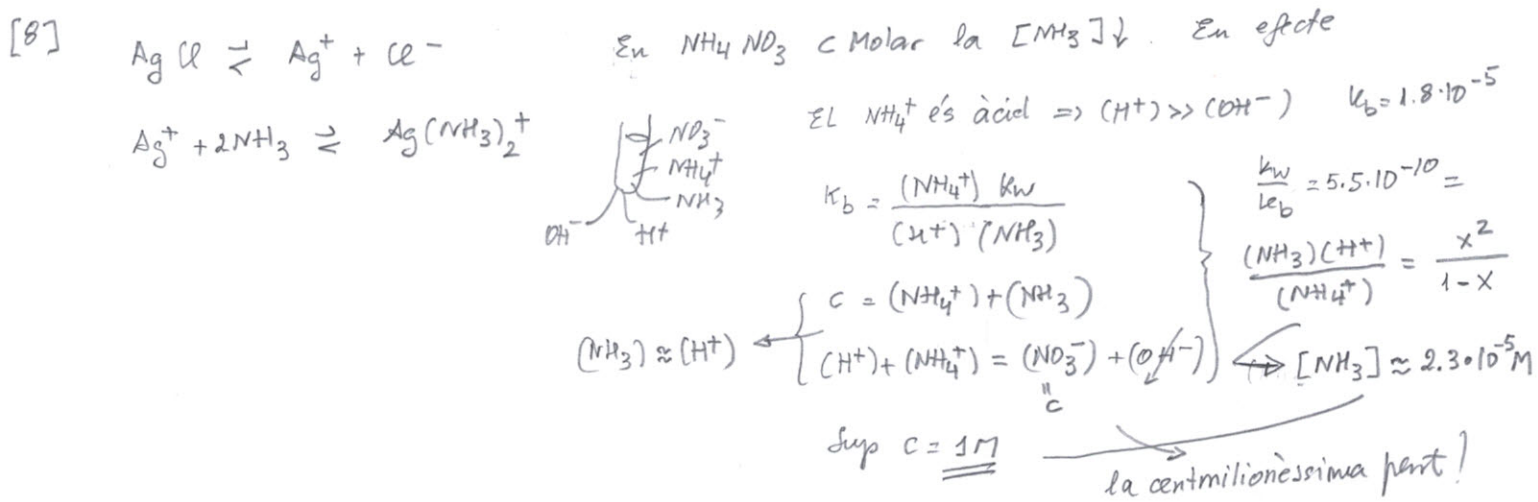 [8]
AgCl ⇌ Ag⁺ + Cl⁻
Ag⁺ + 2NH₃ ⇌ Ag(NH₃)₂⁺
NO₃⁻
NH₄⁺
NH₃
OH⁻ H⁺
En NH₄NO₃ C Molar la [NH₃]↓. En efecte
El NH₄⁺ és àcid => (H⁺) >> (OH⁻) Kb = 1.8·10⁻⁵
Kb = (NH₄⁺) Kw / (H⁺) (NH₃)
Kw / Kb = 5.5·10⁻¹⁰ =
(NH₃)(H⁺) / (NH₄⁺) = x² / 1-x
C = (NH₄⁺) + (NH₃)
(NH₃) ≈ (H⁺)
(H⁺) + (NH₄⁺) = (NO₃⁻) + (OH⁻)
[NH₃] ≈ 2.3·10⁻⁵ M
"
C
Sup C = 1M
la centmilionèssima part!